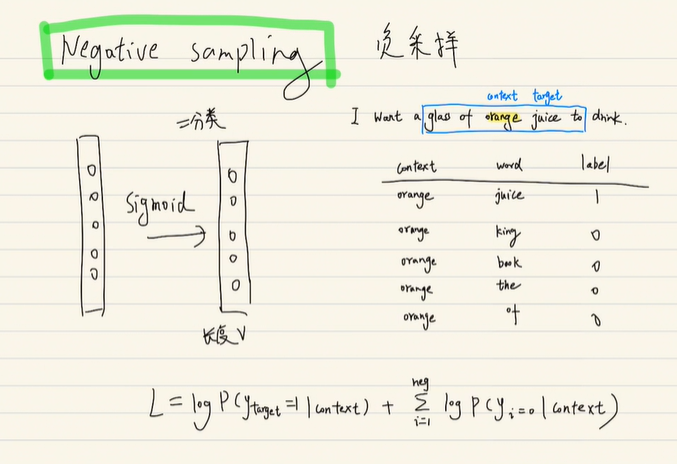 Negative sampling 负采样
context target
I want a glass of orange juice to drink.
二分类
Sigmoid
长度 V
context word label
orange juice 1
orange king 0
orange book 0
orange the 0
orange of 0
L = log P(y_target=1 | context) + ∑_{i=1}^{neg} log P(y_i=0 | context)